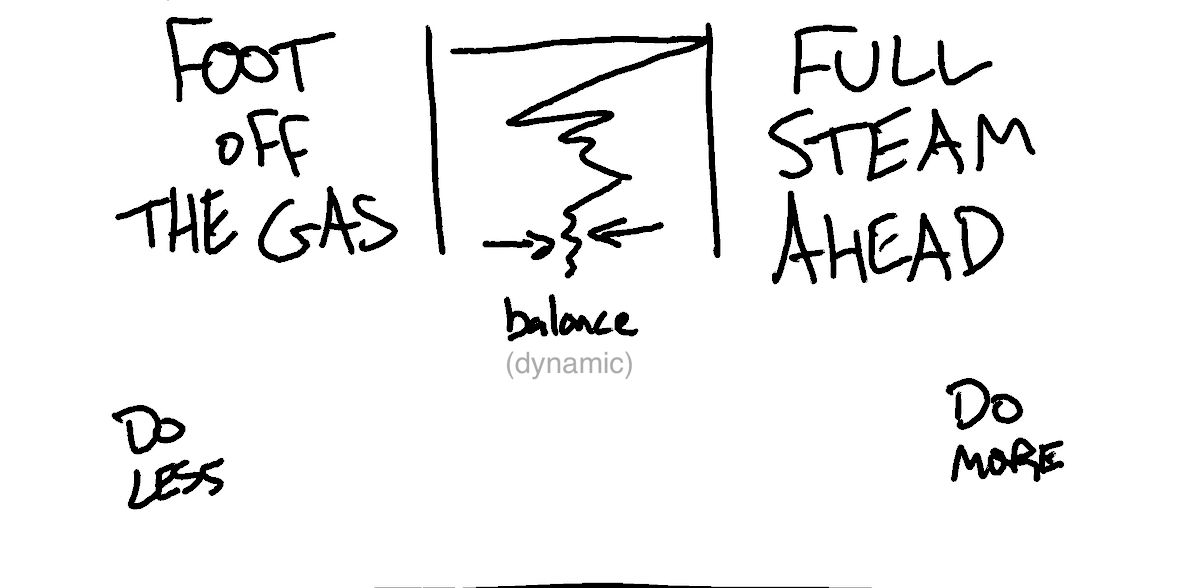 FOOT
OFF
THE GAS
FULL
STEAM
AHEAD
balance
(dynamic)
DO
LESS
DO
MORE